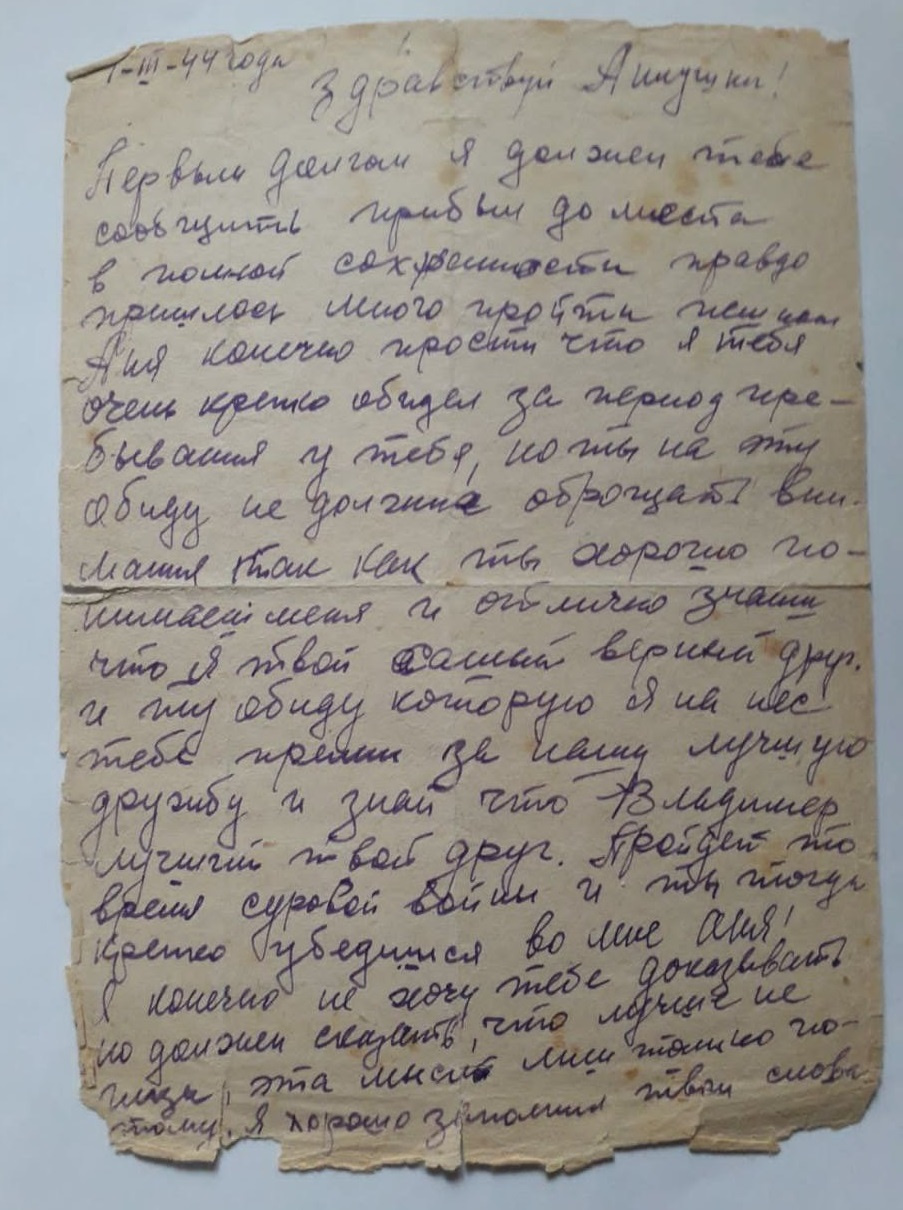 1-III-44 года
Здравствуй Аннушка!
Первым долгом я должен тебе
сообщить прибыл до места
в полной сохранности правдо
пришлось много пройти пешком
Аня конечно прости что я тебя
очень крепко обидел за период пре-
бывания у тебя, но ты на эту
обиду не должна оброщать вни-
мания так как ты хорошо по-
нимаеш меня и отлично знаиш
что я твой самый верный друг.
и ту обиду которую я на нес
тебе прими за нашу лучшую
дружбу и знай что Владимер
лучший твой друг. Пройдет то
время суровой войны и ты тогда
крепко убедишся во мне Аня!
Я конечно не хочу тебе доказывать
но должен сказать, что лучше не
эта мысль лиш только по-
тому. Я хорошо запомнил твои слова